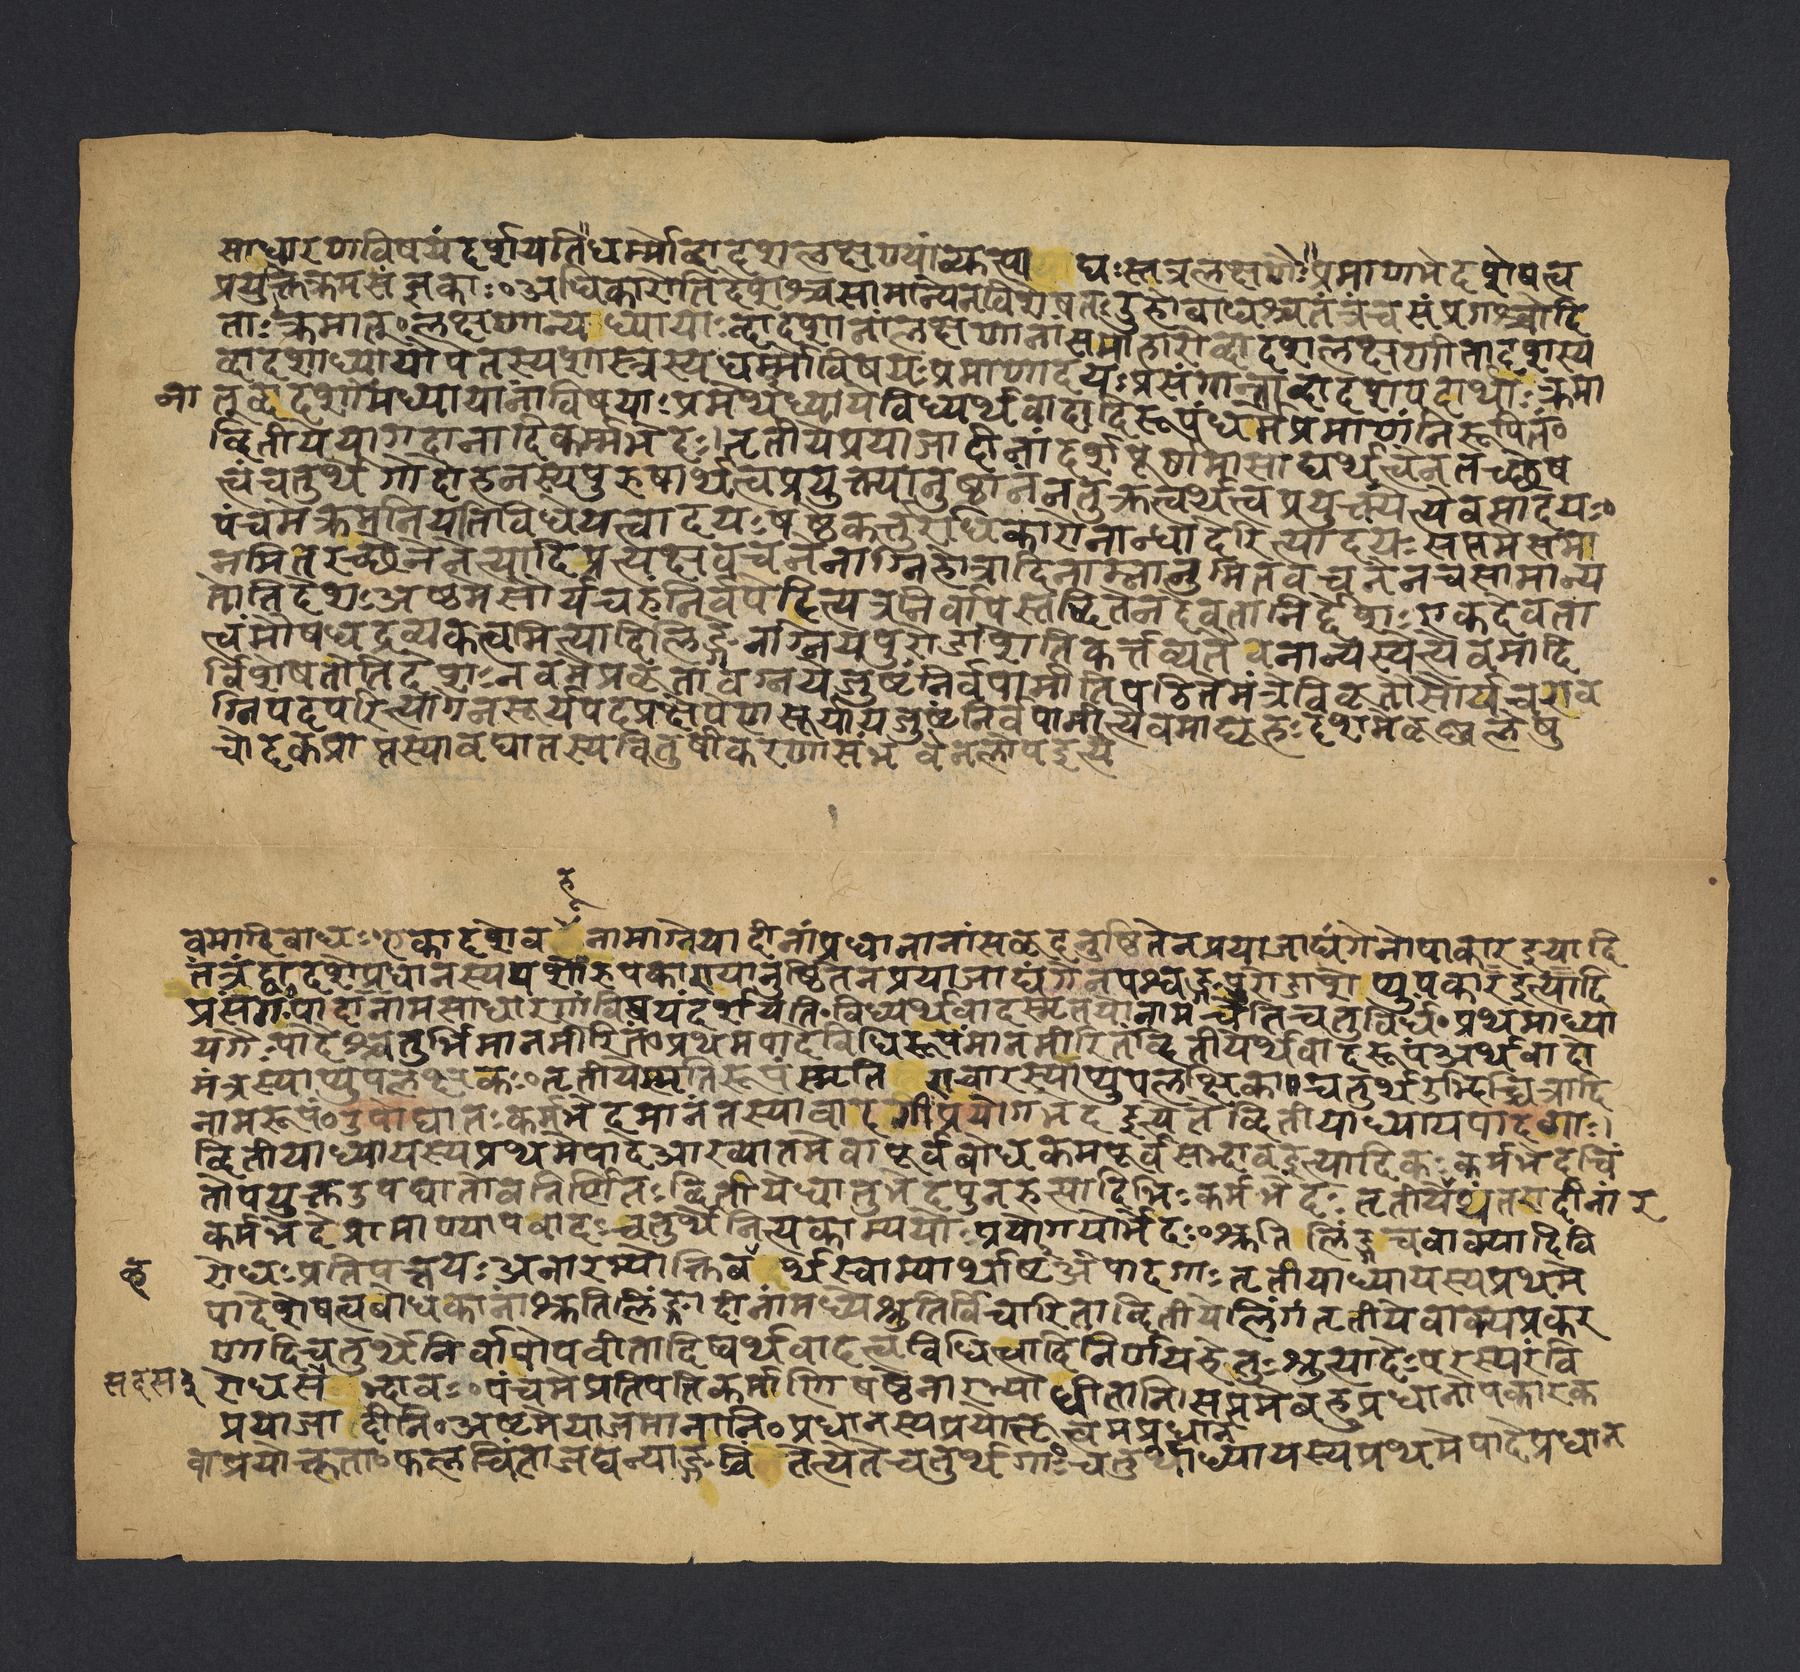 साधारणविषयंदर्शयति"धर्म्मोद्वादशलक्षण्यांव्युत्पाद्यः॥स्तत्रलक्षणैः"प्रमाणभेदशेषत्व
प्रयुक्तिक्रमसंज्ञकाः॰अधिकारोतिदेशश्चसामान्येनविशेषतःऊहोबाधश्चतंत्रंचसंप्रगश्चोदि
ताःक्रमात्॰लक्षणान्यध्यायाःद्वादशानांलक्षणानांसमाहारोद्वादशलक्षणीतादृशस्य
द्वादशाध्यायोपेतस्यशास्त्रस्यधर्म्मोविषयःप्रमाणादयःप्रसंगान्ताद्वादशपदार्थाःक्रमा
ना त्द्वादशामध्यायानांविषयाःप्रमेथध्यायेविध्यर्थवादादिरूपंधर्मेप्रमाणंनिरूपितं॰
द्वितीयेयागदानादिकर्म्मभेदः।तृतीयेप्रयाजादीनांदर्शपूर्णमासाद्यर्थत्वेनतच्छेष
त्वंचतुर्थेगोदोहनस्यपुरुषार्थत्वप्रयुक्त्यानुष्ठानंनतुक्रत्वर्थत्वप्रयुक्त्येत्येवमादयः॰
पंचमेक्रमनियतिविधेयत्वादयःषष्ठेकर्त्तुरधिकारोनान्धादेरित्यादयःसप्तमेसमा
नमितरच्छेनेनेत्यादिप्रत्यक्षवचनेनाग्निहोत्रादिनाम्नानुमितवचनेनचसामान्य
तोतिदेशःअष्टमेसौर्यचरुंनिर्वपेदित्यत्रनिर्वापस्तद्धितेनदेवतानिर्द्देशःएकदेवता
त्वंमौषधद्रव्यकत्वमित्यादिलिङ्गेनाग्नेयपुरोडाशेतिकर्त्तव्यतैवनान्यस्येत्येवमादि
र्विशेषतोतिदेशःनवमेप्रकृतावग्नयेजुष्टंनिर्वपामीतिपठितेमंत्रेविकृतौसौर्यचराव
ग्निपदपरित्यागेनसूर्यपदप्रक्षेपेणसूर्यायजुष्टंनिर्वपामीत्येवमाद्यूहःदशमेकृष्णलेषु
चोदकप्राप्तस्यावघातस्यवितुषीकरणासंभवेनलोपइत्ये
वमादिबाधः।एकादशेबहूनामाग्नेयादीनांप्रधानानांसकृदनुष्ठितेनप्रयाजाद्यंगेनोपकारइत्यादि
तंत्रंद्वादशेप्रधानस्यपशोरुपकारायानुष्ठितेनप्रयाजाद्यंगेनपश्वङ्गपुरोडाशेप्युपकारइत्यादि
प्रसंगःपादानामसाधारणंविषयंदर्शयति॰विध्यर्थवादस्मृतयोनामचेतिचतुर्विधं॰प्रथमाध्या
यगैःपादैश्चतुर्भिमानमीरितं॰प्रथमेपादेविधिरूपंमानमीरितंद्वितीयेर्थवादरूपंअर्थवादो
मंत्रस्याप्युपलक्षकः॰तृतीयेस्मृतिरूपंस्मृतिराचारस्याप्युपलक्षिका॥चतुर्थेउद्भिच्चित्रादि
नामरूपं॰उपोद्घातःकर्मभेदमानंतस्यापवादगीःप्रयोगभेदइत्येतेद्वितीयाध्यायपादगाः।
द्वितीयाध्यायस्यप्रथमेपादेआख्यातमेवापूर्वबोधकमपूर्वसद्भावइत्यादिकःकर्मभेदचिं
तोपयुक्तउपोद्घातोवर्निर्णितःद्वितीयेधातुभेदपुनरुक्त्यादिभिःकर्मभेदःतृतीयेरथंतरादीनांर
कर्मभेदप्रामाण्यापवादःचतुर्थेनित्यकाम्ययोःप्रयोगयोर्भेदः॰श्रुतिर्लिङ्गंचवाक्यादिवि
रोधःप्रतिपत्तयःअनारभ्योक्तिबह्वर्थस्वाम्यार्थाष्टअंपादगाःतृतीयाध्यायस्यप्रथमे
पादेशेषत्वबोधकानांश्रुतिलिङ्गादीनांमध्येश्रुतिर्विचारिताद्वितीयेलिंगंतृतीयेवाक्यप्रकर
णादिचतुर्थेनिर्वापोपवीतादिष्वर्थवादत्वविधित्वादिनिर्णयहेतुःश्रुत्यादेःपरस्परंवि
सदसदु रोधसद्भावः॰पंचमेप्रतिपत्तिकर्माणिषष्ठेनारभ्याधीतानि।सप्तमेबहुप्रधानोपकारक
प्रयाजादीनि॰अष्टमेयाजमानानि॰प्रधानस्यप्रयोक्तृत्वमप्रधान
वाप्रयोक्तृता॰फलचिंताजघन्याङ्गचिंतेत्येतेचतुर्थगाःचतुर्थाध्यायस्यप्रथमेपादेप्रधान